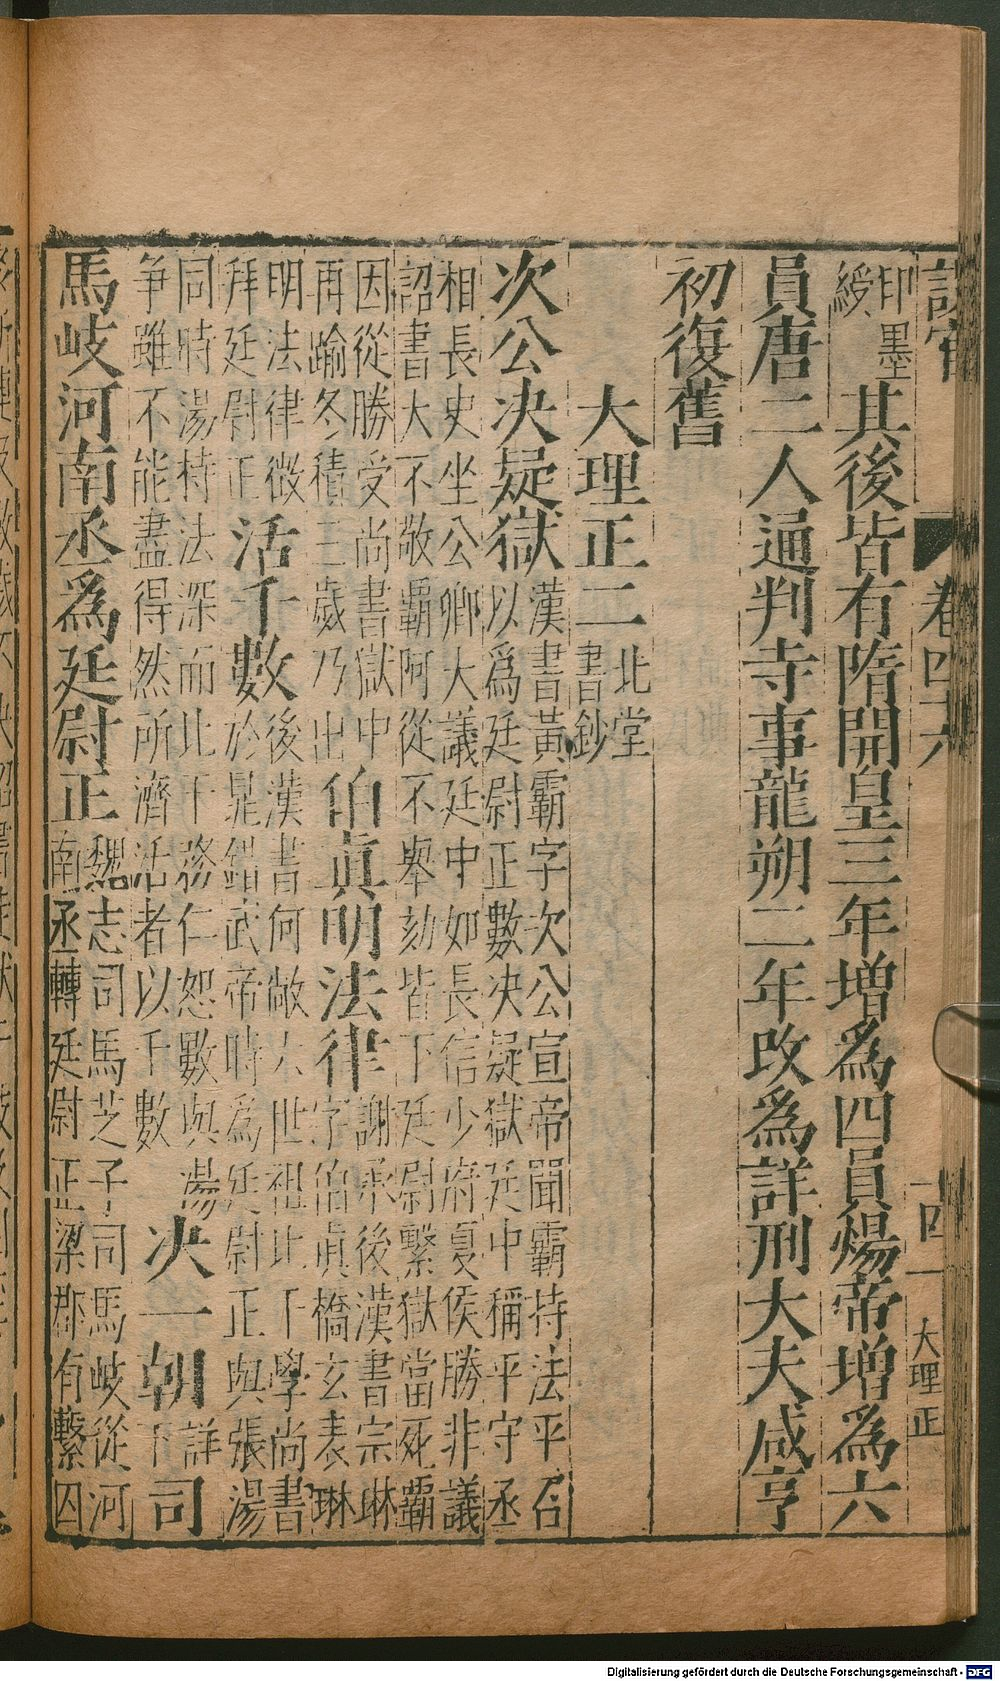 設官　卷四六　十四　大理正
印墨
綬
其後皆有隋開皇三年增爲四員煬帝增爲六
員唐二人通判寺事龍朔二年改爲詳刑大夫咸亨
初復舊
大理正二
北堂
書鈔
次公決疑獄
漢書黃霸字次公宣帝聞霸持法平召
以爲廷尉正數決疑獄廷中稱平守丞
相長史坐公卿大議廷中知長信少府夏侯勝非議
詔書大不敬霸阿從不舉劾皆下廷尉繫獄當死霸
因從勝受尚書獄中
再踰冬積三歲乃出
伯眞明法律
謝承後漢書宗琳
字伯眞橋玄表琳
明法律微
拜廷尉正
活千數
後漢書何敞六世祖比干學尚書
於晁錯武帝時爲廷尉正與張湯
同時湯持法深而比干務仁恕數與湯
争雖不能盡得然所濟活者以千數
決一朝
詳
下
司
馬岐河南丞爲廷尉正
魏志司馬芝子司馬岐從河
南丞轉廷尉正梁郡有繫囚
Digitalisierung gefördert durch die Deutsche Forschungsgemeinschaft - DFG